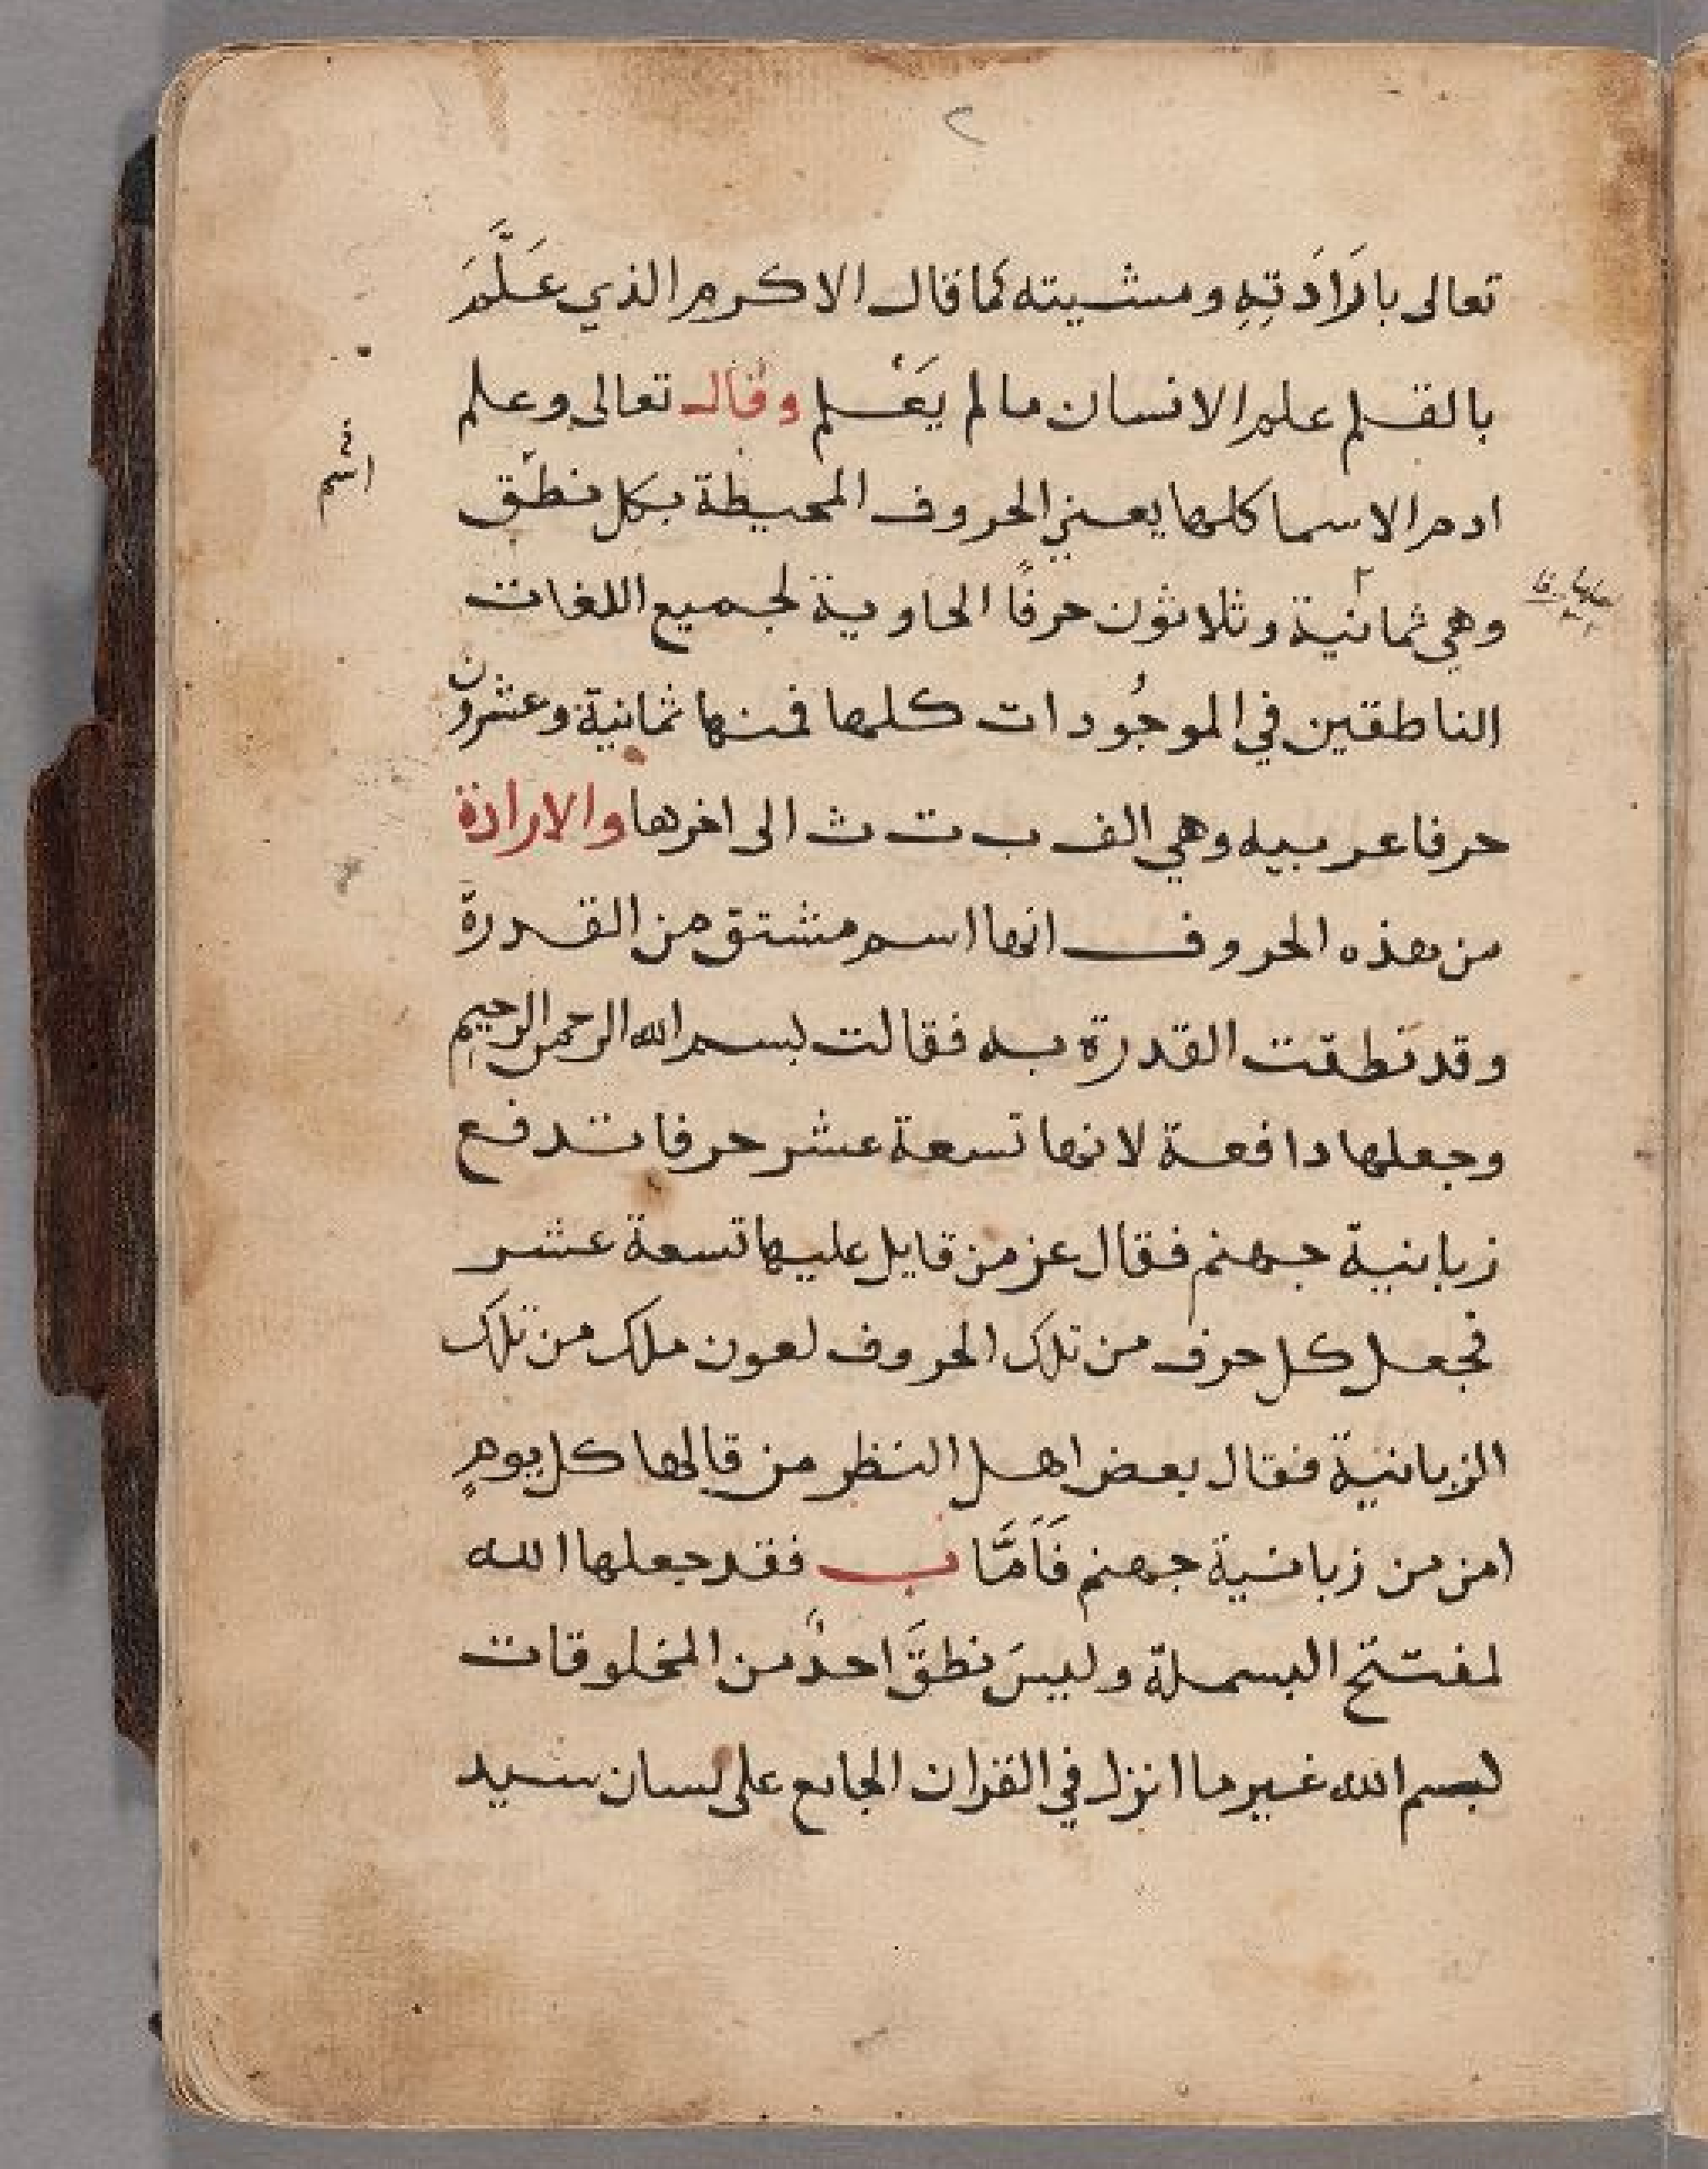 ٢
تعالى بارَادَتِهِ ومشيته كما قال الاكرم الذي عَلَّمَ
بالقلم علم الانسان ما لم يَعْلم وقال تعالى وعلم
ادم الاسما كلها يعني الحروف المحيطة بكل نطق
وهي ثمانية وثلاثون حرفًا الحاوية لجميع اللغات
الناطقين في الموجُودات كلها فمنها ثمانية وعشرون
حرفا عربيه وهي الف ب ت ث الى اخرها والارادة
من هذه الحروف انها اسم مشتق من القدرة
وقد نطقت القدرة به فقالت بسم الله الرحمن الرحيم
وجعلها دافعة لانها تسعة عشر حرفا تدفع
زبانية جهنم فقال عز من قايل عليها تسعة عشر
فجعل كل حرف من تلك الحروف لعون ملك من تلك
الزبانية فقال بعض اهل النظر من قالها كل يومٍ
امن من زبانية جهنم فَاَمَّا ب فقد جعلها الله
لمفتتح البسملة وليسَ نطقَ احدٌ من المخلوقات
لبسم الله غير ما انزل في القران الجامع على لسان سيد